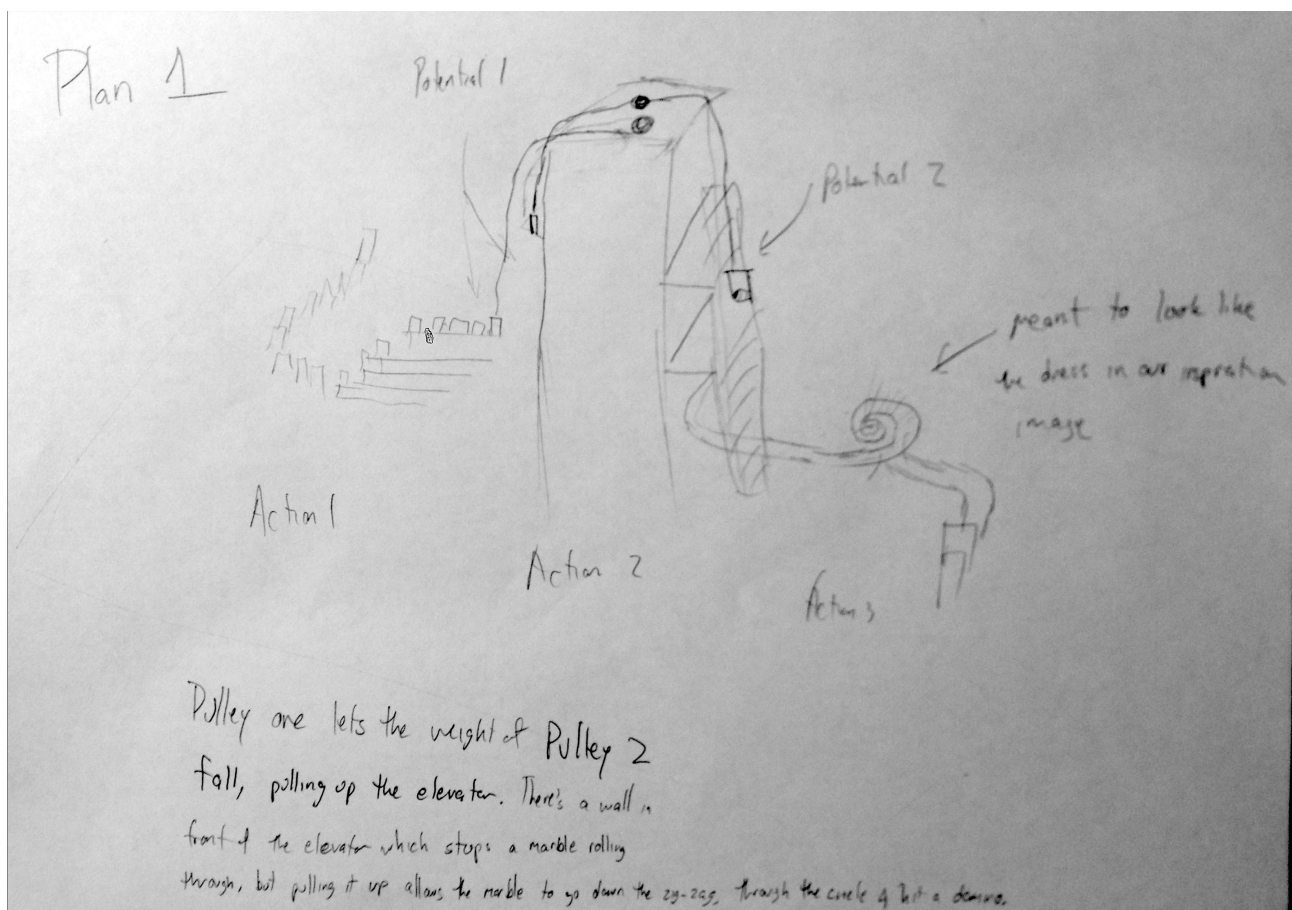 Plan 1
Potential 1
Potential 2
meant to look like
the dress in our inspiration
image
Action 1
Action 2
Action 3
Pulley one lets the weight of Pulley 2
fall, pulling up the elevator. There's a wall in
front of the elevator which stops a marble rolling
through, but pulling it up allows the marble to go down the zig-zag, through the circle & hit a domino.